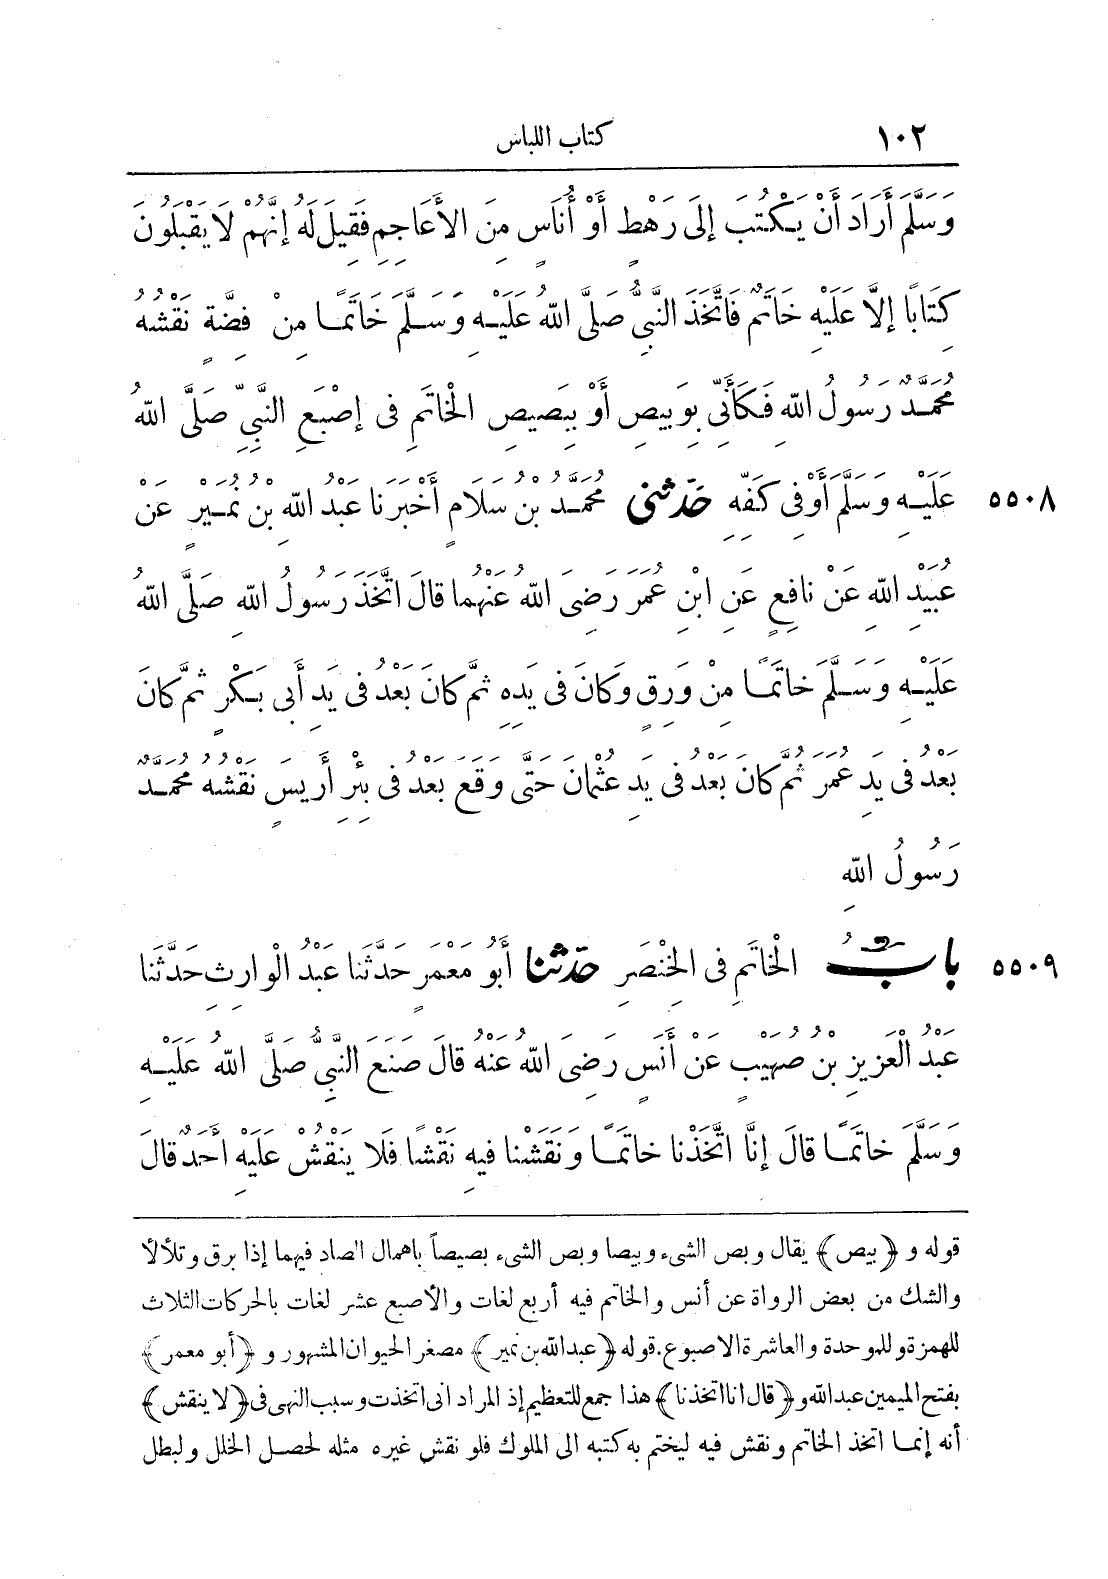 ١٠٢ كتاب اللباس
وَسَلَّمَ أَرَادَ أَنْ يَكْتُبَ إِلَى رَهْطٍ أَوْ أُنَاسٍ مِنَ الأَعَاجِمِ فَقِيلَ لَهُ إِنَّهُمْ لَا يَقْبَلُونَ
كِتَابًا إِلَّا عَلَيْهِ خَاتَمٌ فَاتَّخَذَ النَّبِيُّ صَلَّى اللهُ عَلَيْهِ وَسَلَّمَ خَاتَمًا مِنْ فِضَّةٍ نَقْشُهُ
مُحَمَّدٌ رَسُولُ اللهِ فَكَأَنِّي بِوَبِيصِ أَوْ بِبَصِيصِ الْخَاتَمِ فى إِصْبَعِ النَّبِيِّ صَلَّى اللهُ
٥٥٠٨ عَلَيْهِ وَسَلَّمَ أَوْ فِى كَفِّهِ حَدَّثَنِى مُحَمَّدُ بْنُ سَلَامٍ أَخْبَرَنَا عَبْدُ اللهِ بْنُ نُمَيْرٍ عَنْ
عُبَيْدِ اللهِ عَنْ نافِعٍ عَنِ ابْنِ عُمَرَ رَضِىَ اللهُ عَنْهُما قالَ اتَّخَذَ رَسُولُ اللهِ صَلَّى اللهُ
عَلَيْهِ وَسَلَّمَ خاتَمًا مِنْ وَرِقٍ وَكانَ فى يَدِهِ ثُمَّ كانَ بَعْدُ فى يَدِ أَبِى بَكْرٍ ثُمَّ كانَ
بَعْدُ فى يَدِ عُمَرَ ثُمَّ كانَ بَعْدُ فى يَدِ عُثْمانَ حَتَّى وَقَعَ بَعْدُ فى بِئْرِ أَرِيسَ نَقْشُهُ مُحَمَّدٌ
رَسُولُ اللهِ
٥٥٠٩ بابُ الْخاتَمِ فى الْخِنْصَرِ حَدَّثَنا أَبُو مَعْمَرٍ حَدَّثَنا عَبْدُ الْوارِثِ حَدَّثَنا
عَبْدُ الْعَزِيزِ بْنُ صُهَيْبٍ عَنْ أَنَسٍ رَضِىَ اللهُ عَنْهُ قالَ صَنَعَ النَّبِيُّ صَلَّى اللهُ عَلَيْهِ
وَسَلَّمَ خاتَمًا قالَ إِنَّا اتَّخَذْنا خاتَمًا وَنَقَشْنا فِيهِ نَقْشًا فَلا يَنْقُشْ عَلَيْهِ أَحَدٌ قالَ
قوله و ﴿بيص﴾ يقال وبص الشىء وبيصا وبص الشىء بصيصاً باهمال الصاد فيهما إذا برق وتلألأ
والشك من بعض الرواة عن أنس والخاتم فيه أربع لغات والأصبع عشر لغات بالحركات الثلاث
للهمزة وللموحدة والعاشرة الاصبوع. قوله ﴿عبد الله بن نمير﴾ مصغر الحيوان المشهور و ﴿أبو معمر﴾
بفتح الميمين عبد الله و ﴿قال انا اتخذنا﴾ هذا جمع للتعظيم إذ المراد انى اتخذت وسبب النهى فى ﴿لا ينقش﴾
أنه إنما اتخذ الخاتم ونقش فيه ليختم به كتبه الى الملوك فلو نقش غيره مثله لحصل الخلل ولبطل